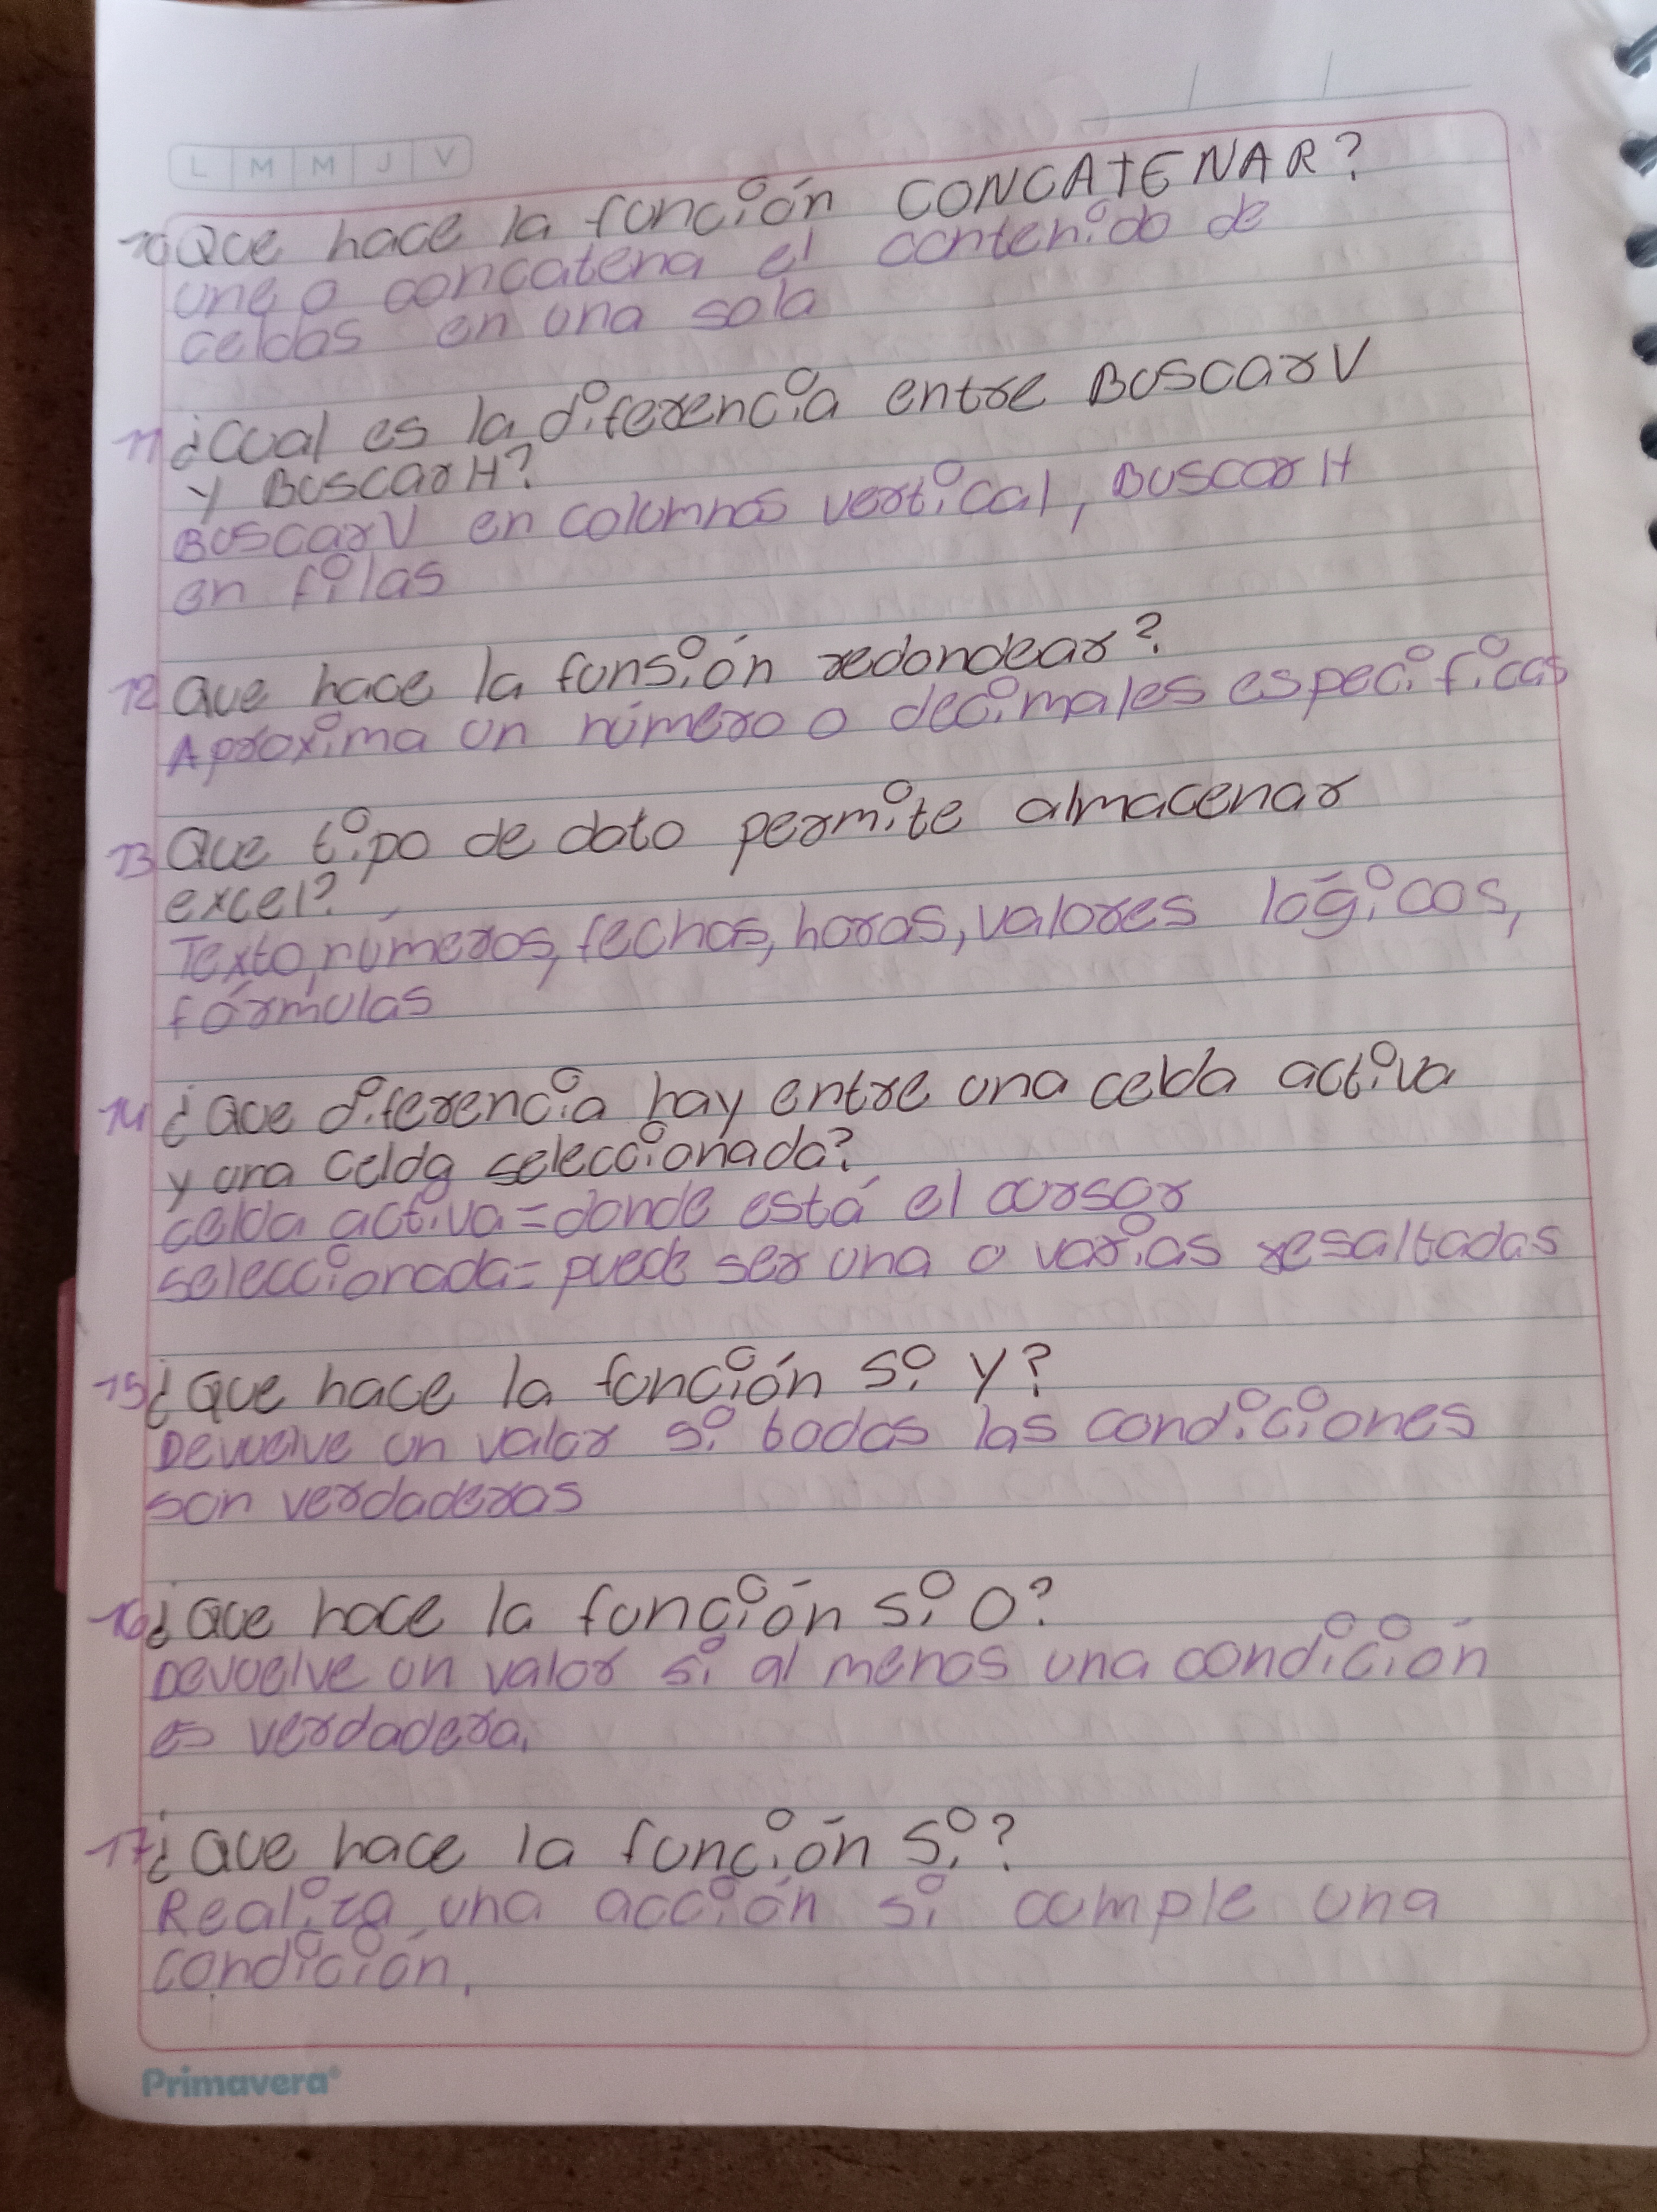 L M M J V
10 Que hace la función CONCATENAR?
une o concatena el contenido de
celdas en una sola
11 ¿Cual es la diferencia entre BuscarV
y BuscarH?
BuscarV en columnas vertical, BuscarH
en filas
12 Que hace la funsión redondear?
Aproxima un número o decimales especificas
13 Que tipo de dato permite almacenar
excel?
Texto, números, fechas, horas, valores lógicos,
fórmulas
14 ¿Que diferencia hay entre una celda activa
y una celda seleccionada?
celda activa = donde está el cursor
seleccionada = puede ser una o varias resaltadas
15 ¿Que hace la función Si Y?
Devuelve un valor si todas las condiciones
son verdaderas
16 ¿Que hace la función Si O?
Devuelve un valor si al menos una condición
es verdadera.
17 ¿Que hace la función Si?
Realiza una acción si cumple una
condición.
Primavera